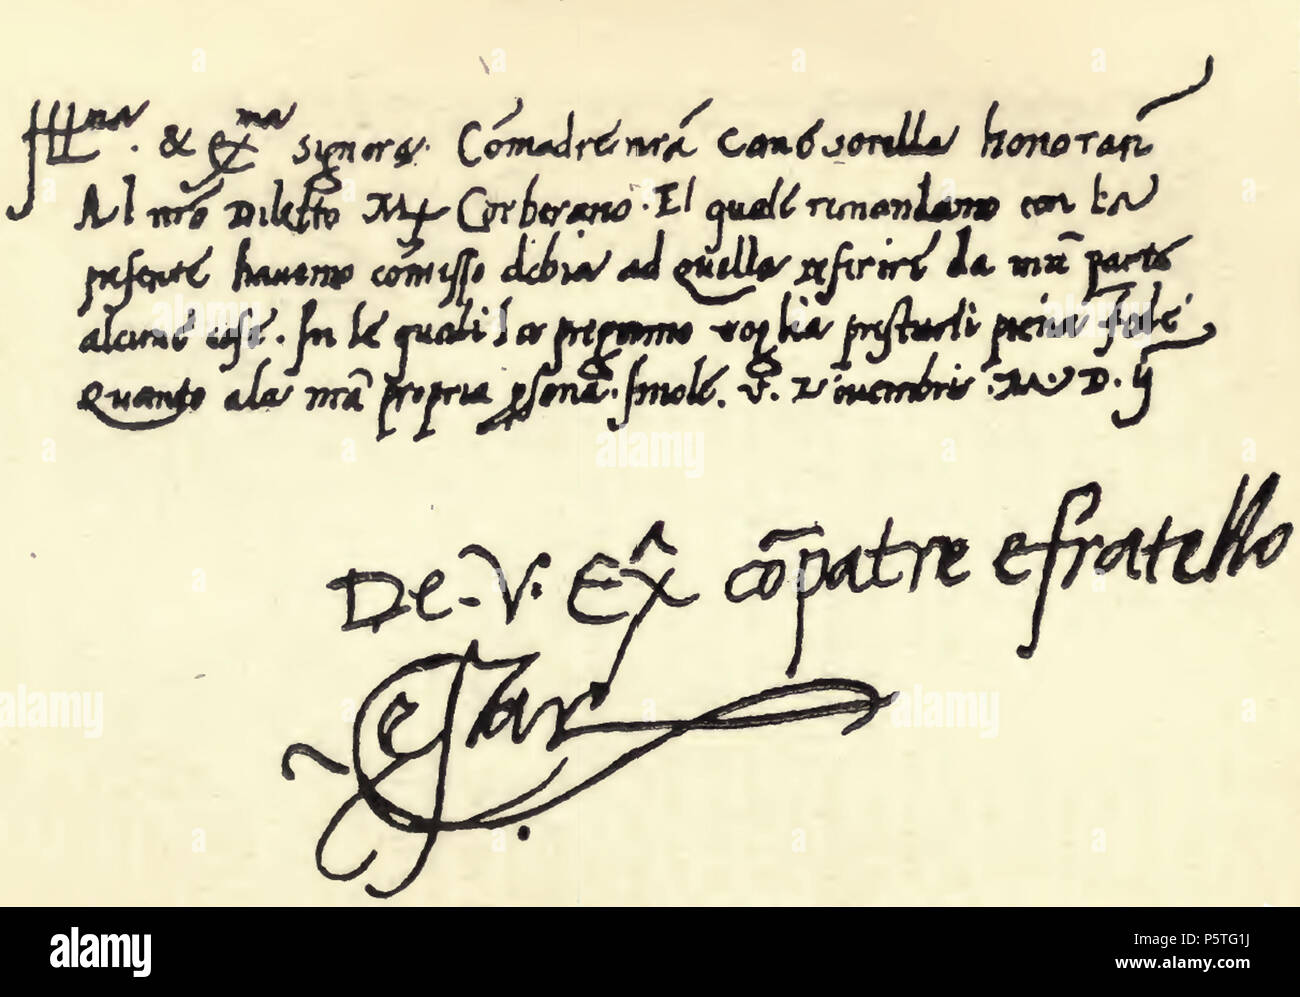 Illma. & exma signora. Cōmadre nrā Come sorella honorañ
Al nrō Diletto Mx Corberano. El quale rimandamo con la
presente havemo cōmisso debia ad quella referire da nrā parte
alcune cose. In le quali la pregamo voglia prestarli piena fede
Quanto ala nrā propria persona. Imole. v. Novembris. M. D. ij
De. V. Ex cōpatre e fratello
Cesar
alamy
Image ID: P5TG1J
www.alamy.com